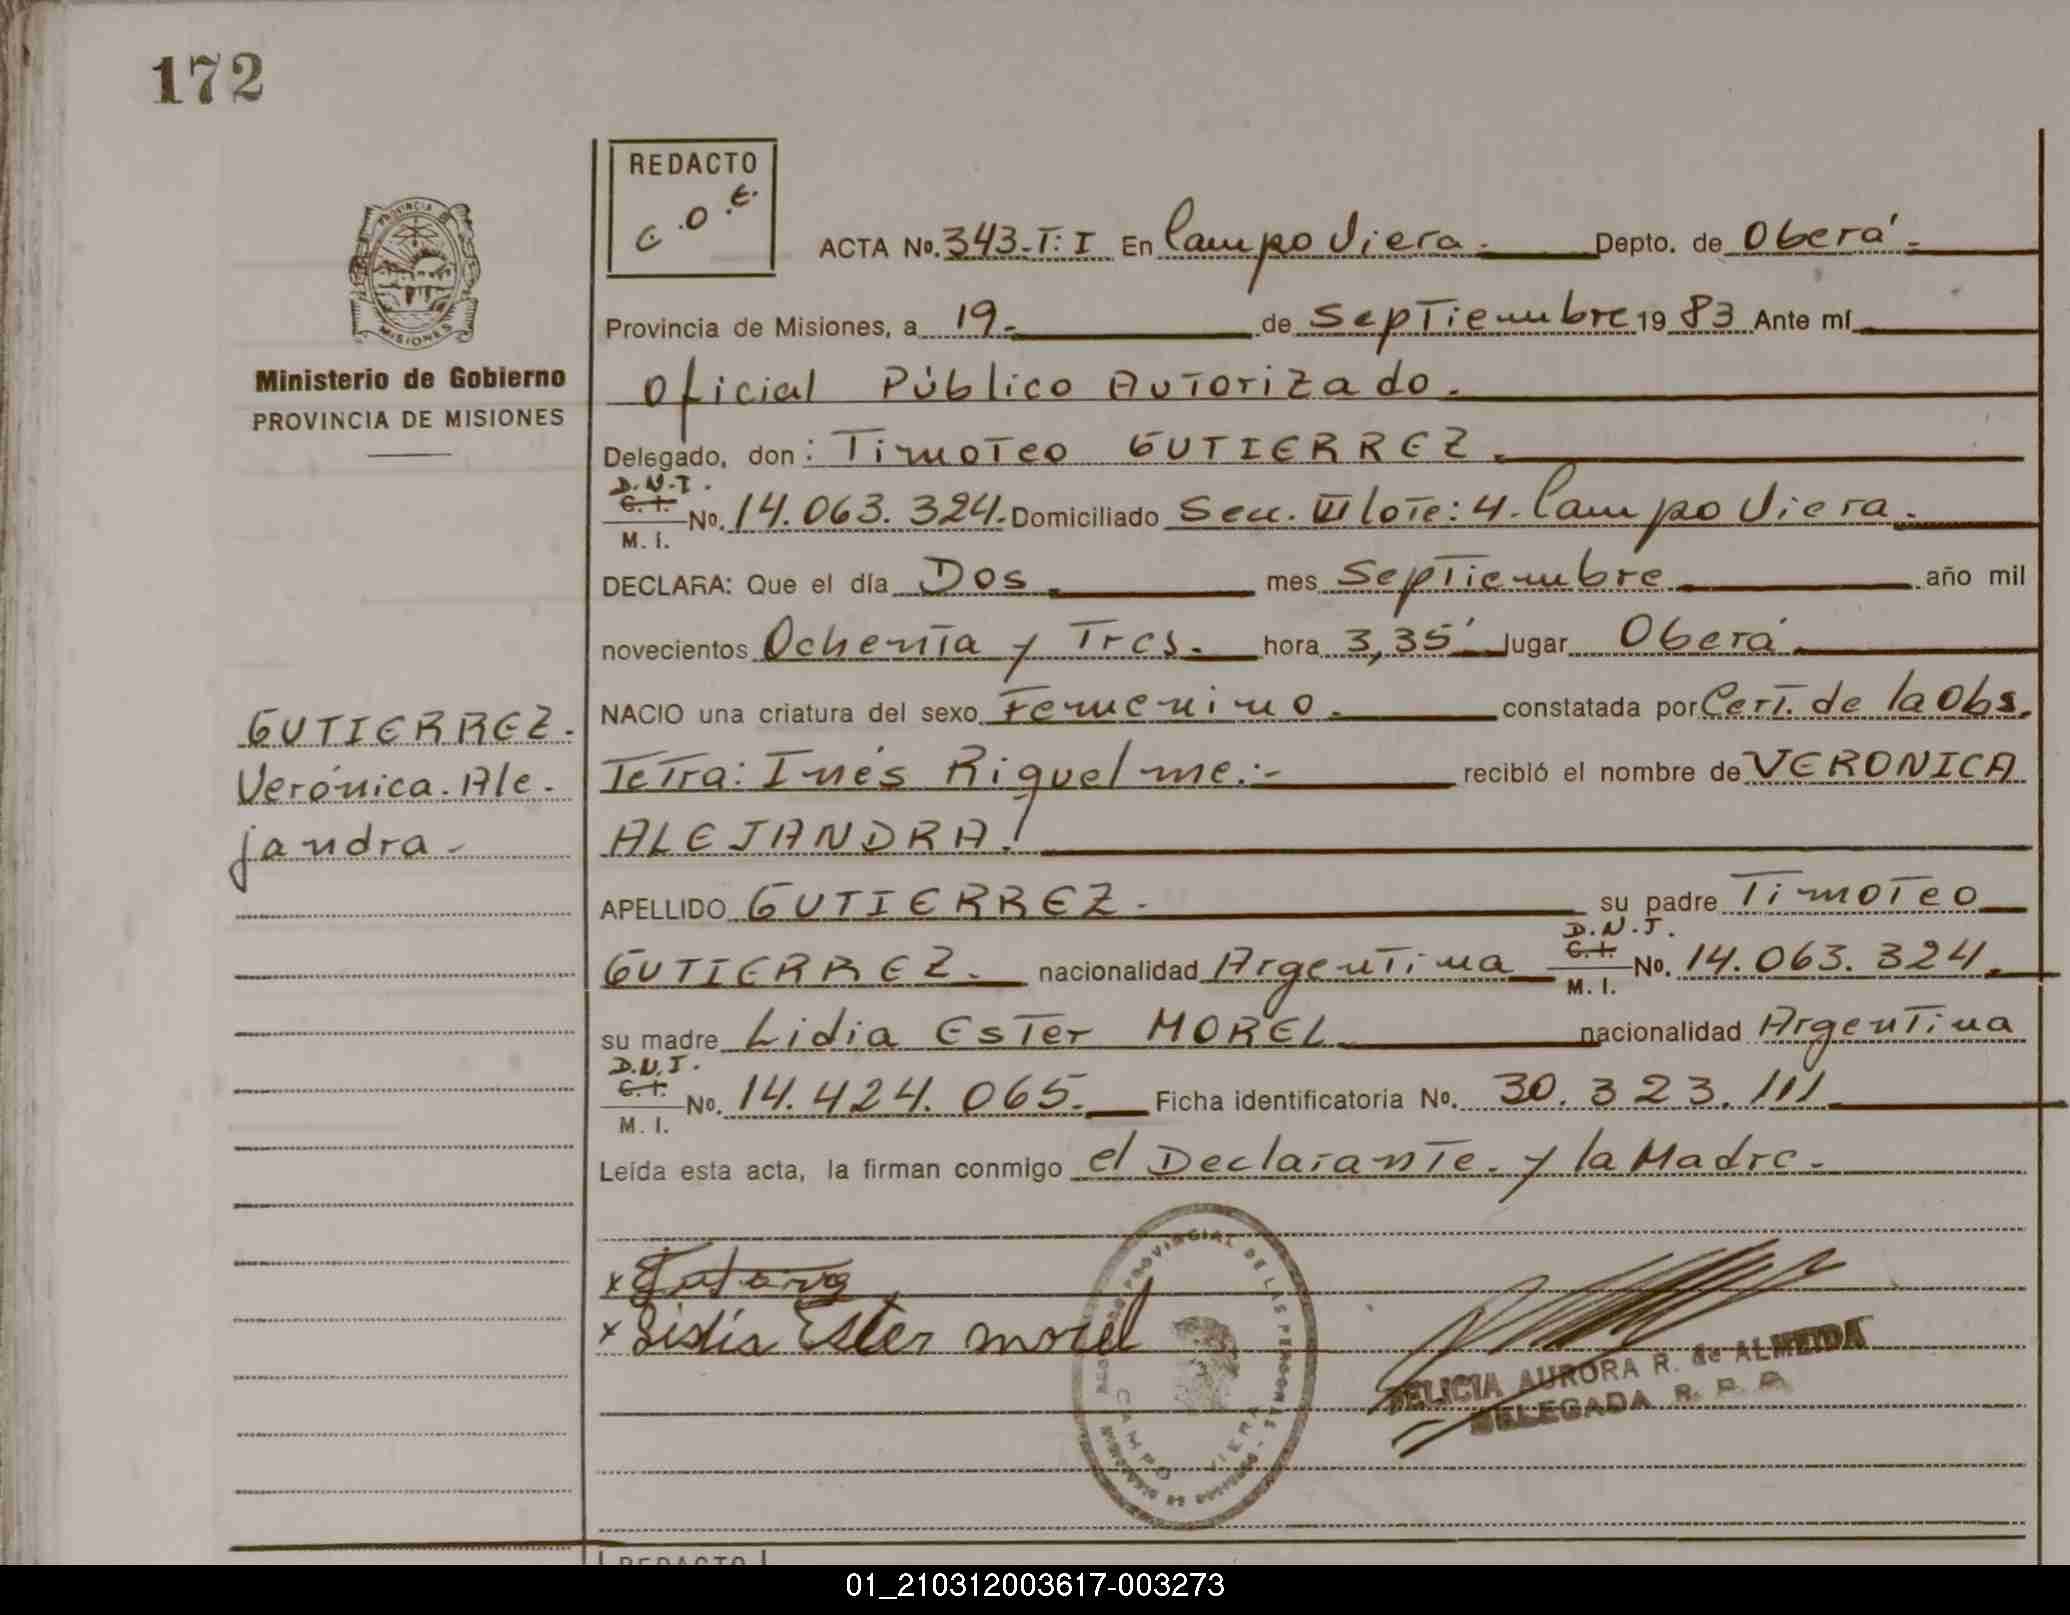 172
REDACTO
C.O.E.
PROVINCIA DE
MISIONES
Ministerio de Gobierno
PROVINCIA DE MISIONES
ACTA No. 343-T: I En Campo Viera. Depto. de Oberá.
Provincia de Misiones, a 19. de Septiembre 19 83 Ante mí
Oficial Público Autorizado.
Delegado, don: Timoteo GUTIERREZ.
D.N.I.
C. I.
M. I. No. 14.063.324. Domiciliado Secc. III lote: 4. Campo Viera.
DECLARA: Que el día Dos mes Septiembre año mil
novecientos Ochenta y Tres. hora 3,35' lugar Oberá
NACIO una criatura del sexo Femenino. constatada por Cert. de la Obs.
Tetra: Inés Riquelme.:- recibió el nombre de VERONICA
ALEJANDRA!
GUTIERREZ.
Verónica. Ale.
jandra-
APELLIDO GUTIERREZ. su padre Timoteo
D.N.I.
GUTIERREZ. nacionalidad Argentina C. I. M. I. No. 14.063.324.
su madre Lidia Ester MOREL nacionalidad Argentina
D.N.I.
C. I.
M. I. No. 14.424.065. Ficha identificatoria No. 30.323.111
Leída esta acta, la firman conmigo el Declarante. y la Madre.
x
x Lidia Ester morel
PROVINCIAL DE LAS PERSONAS
CAMPO VIERA
FELICIA AURORA R. de ALMEIDA
DELEGADA R. P. P.
REDACTO
01_210312003617-003273